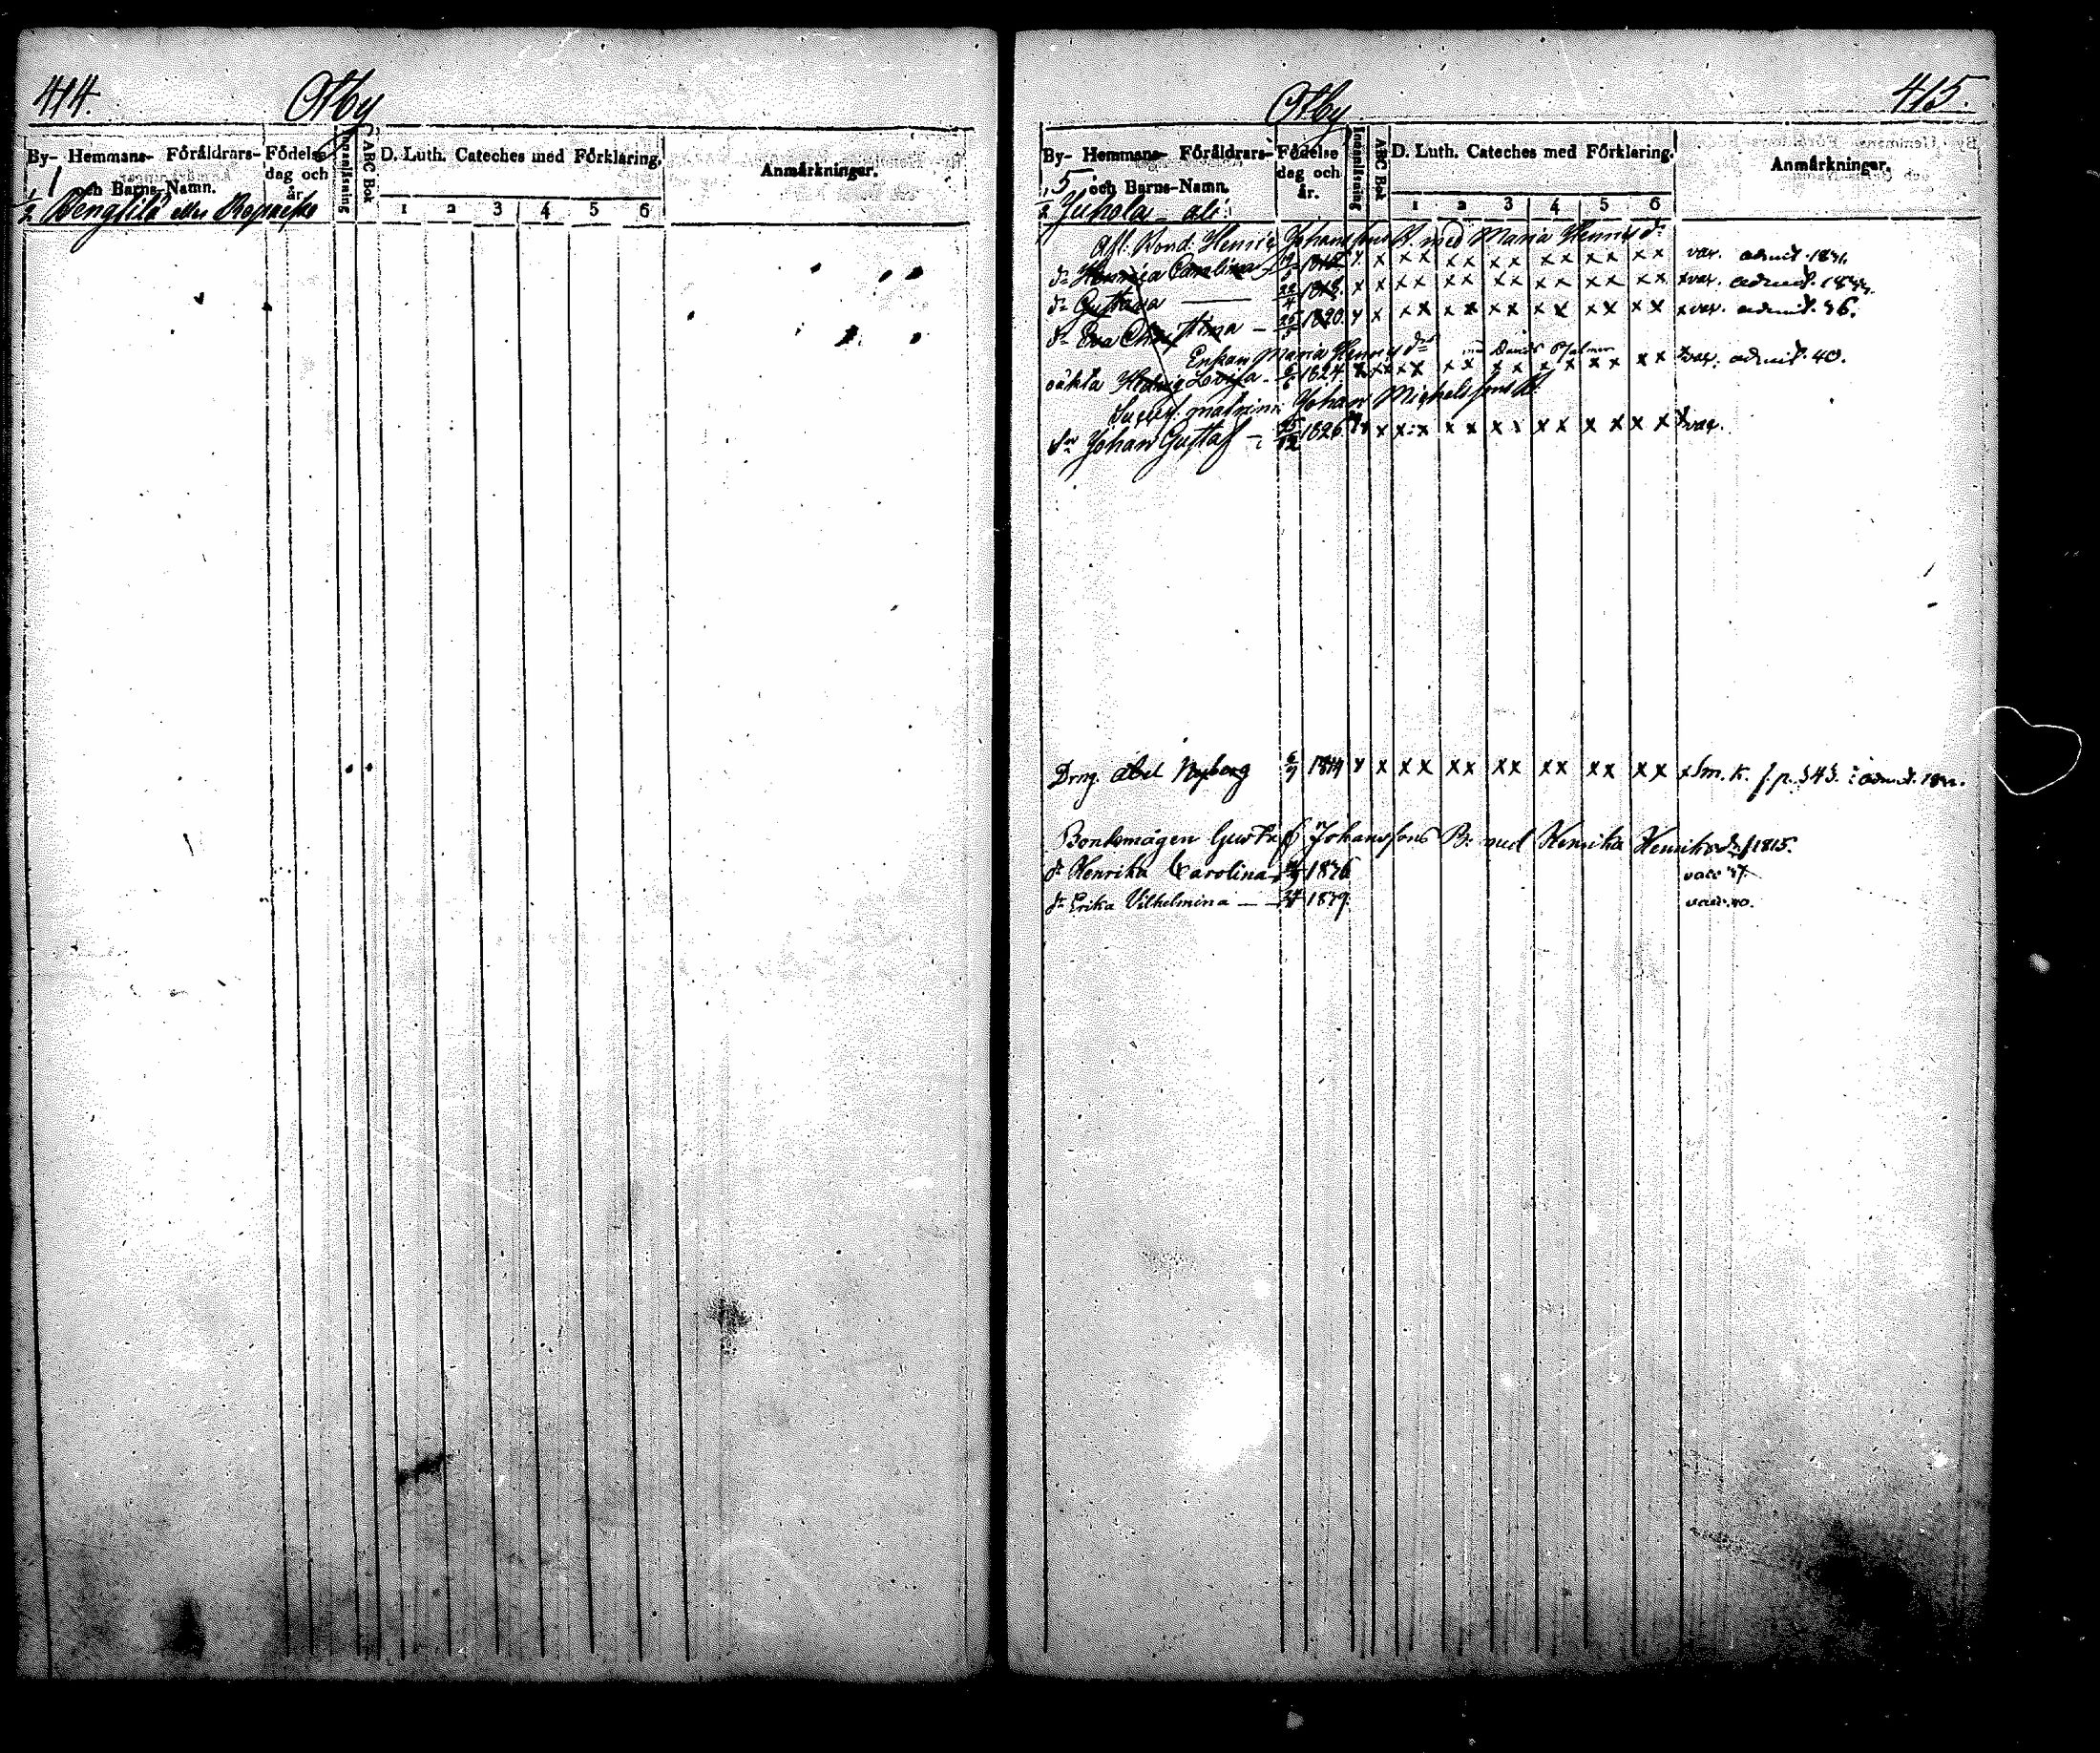 414.
Otby
By- Hemmans- Föräldrars- och Barns-Namn.
Födelse dag och år.
Innanläsning
ABC Bok
D. Luth. Cateches med Förklaring.
1 2 3 4 5 6
Anmärkningar.
1
1/2 Bengtilä eller
415.
Otby
By- Hemmans- Föräldrars- och Barns-Namn.
Födelse dag och år.
Innanläsning
ABC Bok
D. Luth. Cateches med Förklaring.
1 2 3 4 5 6
Anmärkningar.
5
1/2 Juhola
Afl. Bond. Henric Johansson B. med Maria Henricsdr
dr Henrica Carolina x x x x x x x x x x x x x var. admit.
dr Gustava 22/4 1818. x x x x x x x x x x x x x x xvar. admit.
dr Eva Christina 1820. x x x x x x x x x x x x x x xvar. admit. 36.
Enkan Maria Henricsdr
oäkta Hedvig Lovisa 6/6 1824. x x x x x x x x x x x x x x var. admit. 40.
Johan Michelssons B.
Sn Johan Gustaf 25/12 1826 x x x x x x x x x x x x x var.
Drng. Abel Nyberg 6/9 1819 x x x x x x x x x x x x x x x Sm. k. f. p. 343. admit.
Bondemågen Gustaf Johanssons B. med Henrika Henriksdr f 1815.
dr Henrika Carolina 1836 vacc 37.
dr Erika Vilhelmina — 1839. vacc. 40.